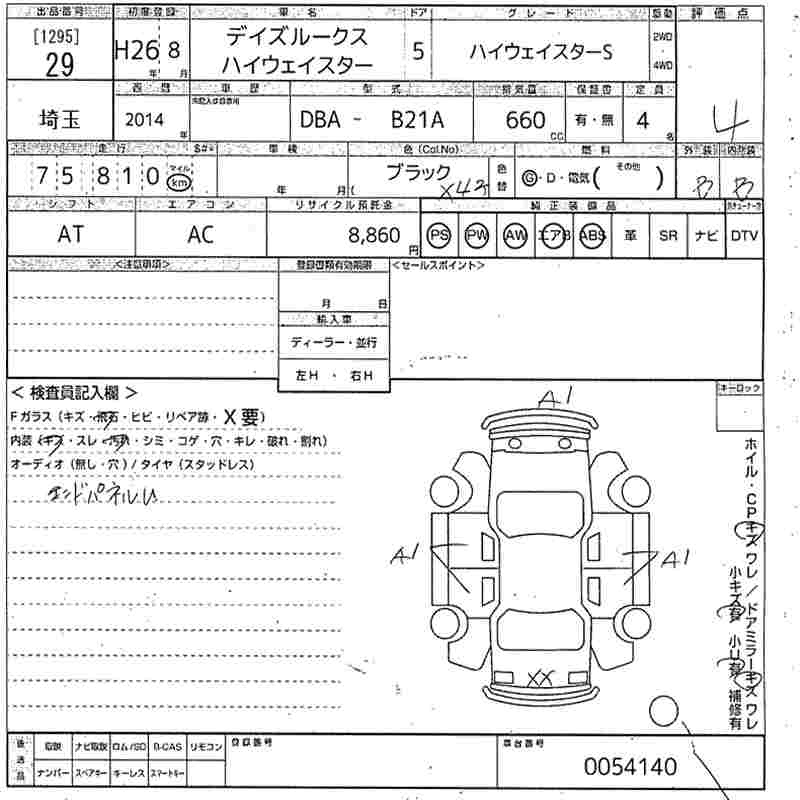 出品番号 初度登録 車名 ドア グレード 駆動 評価点
[1295] 29 H26 年 8 月 デイズルークス ハイウェイスター 5 ハイウェイスターS 2WD 4WD 4
埼玉 2014 年 車歴 型式 DBA - B21A 排気量 660 CC 保証書 有・無 定員 4 名
走行 車検 色(Col.No) 燃料 外装 内装
75810 マイル km 年 月( ブラック 色替 G・D・電気( その他 ) B B
シフト エアコン リサイクル預託金 純正装備品
AT AC 8,860 円 PS PW AW エアB ABS 革 SR ナビ DTV
<注意事項> 登録書類有効期限 <セールスポイント>
月 日
輸入車
ディーラー・並行
左H ・ 右H
< 検査員記入欄 > キーロック
Fガラス(キズ・飛石・ヒビ・リペア跡・X要)
内装(キズ・スレ・汚れ・シミ・コゲ・穴・キレ・破れ・割れ)
オーディオ(無し・穴)/タイヤ(スタッドレス)
エンドパネルU
A1
A1 A1
XX
ホイル・CPキズ ワレ/ドアミラーキズ ワレ
小キズ有 小U有 補修有
後送品 取説 ナビ取説 ロム/SD B-CAS リモコン 登録番号 車台番号
ナンバー スペアキー キーレス スマートキー 0054140